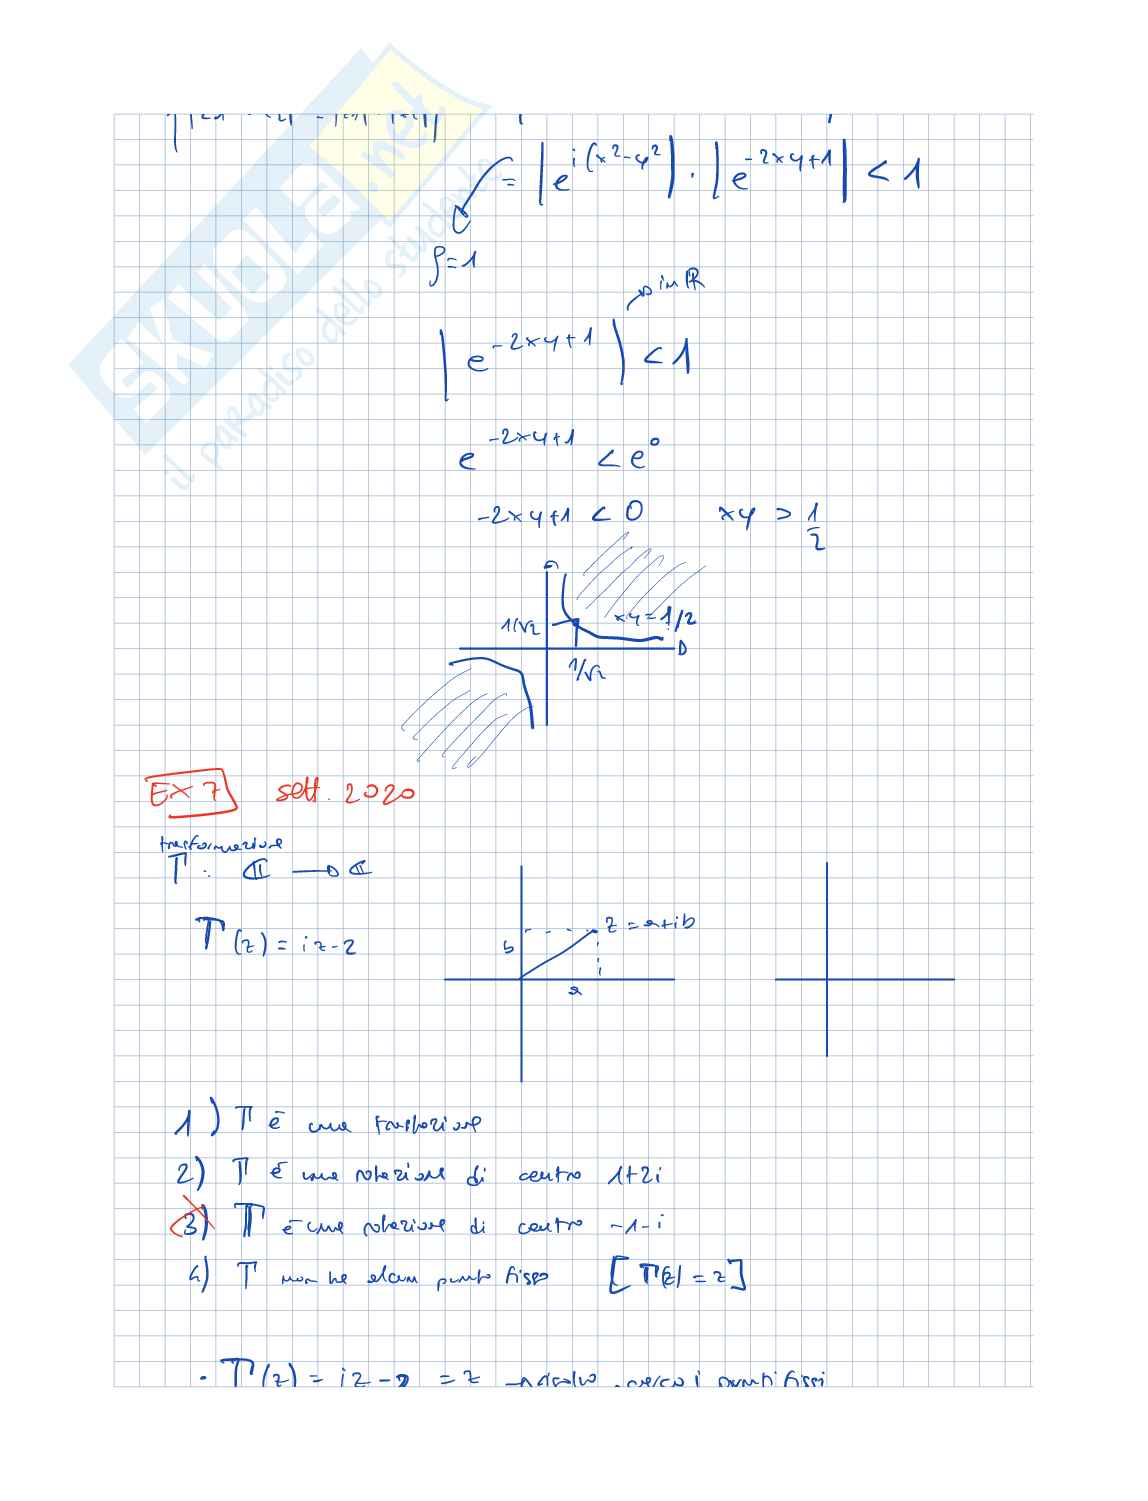 = |e^{i(x²-y²)}| · |e^{-2xy+1}| < 1
ρ=1
in ℝ
|e^{-2xy+1}| < 1
e^{-2xy+1} < e⁰
-2xy+1 < 0 xy > 1/2
xy = 1/2
1/√2
1/√2
EX 7 sett. 2020
trasformazione
T: ℂ → ℂ
T(z) = iz-2
z = a+ib
b
a
1) T è una traslazione
2) T è una rotazione di centro 1+2i
3) T è una rotazione di centro -1-i
4) T non ha alcun punto fisso [T(z) = z]
· T(z) = iz-2 = z → risolvo, cerco i punti fissi
SKUOLA.net
il paradiso dello studente